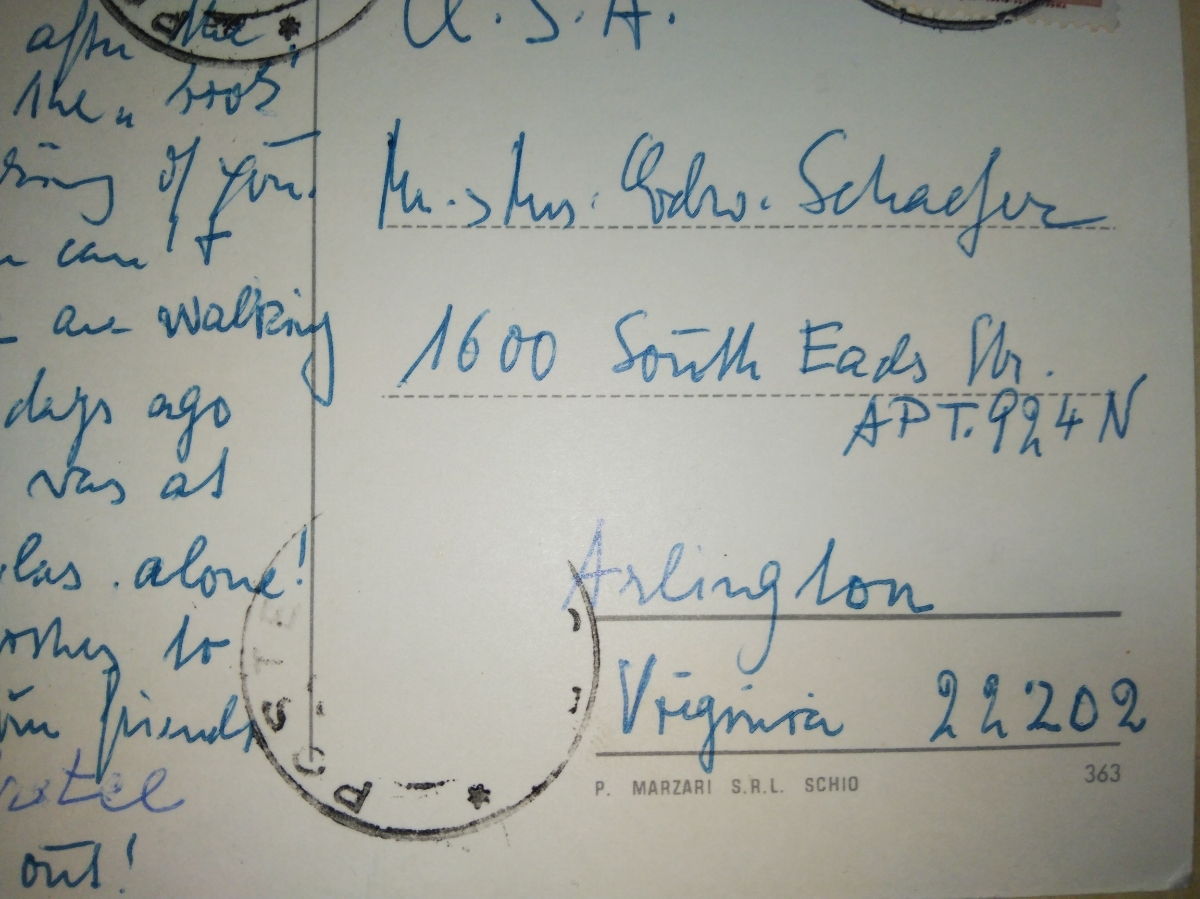 after the
the " book"
of you.
can't
are walking
days ago
was at
alone!
to
friends
out!
U.S.A.
Mr. & Mrs. Edw. Schaefer
1600 South Eads Str.
APT. 924 N
Arlington
Virginia 22202
P. MARZARI S.R.L. SCHIO
363
POSTE